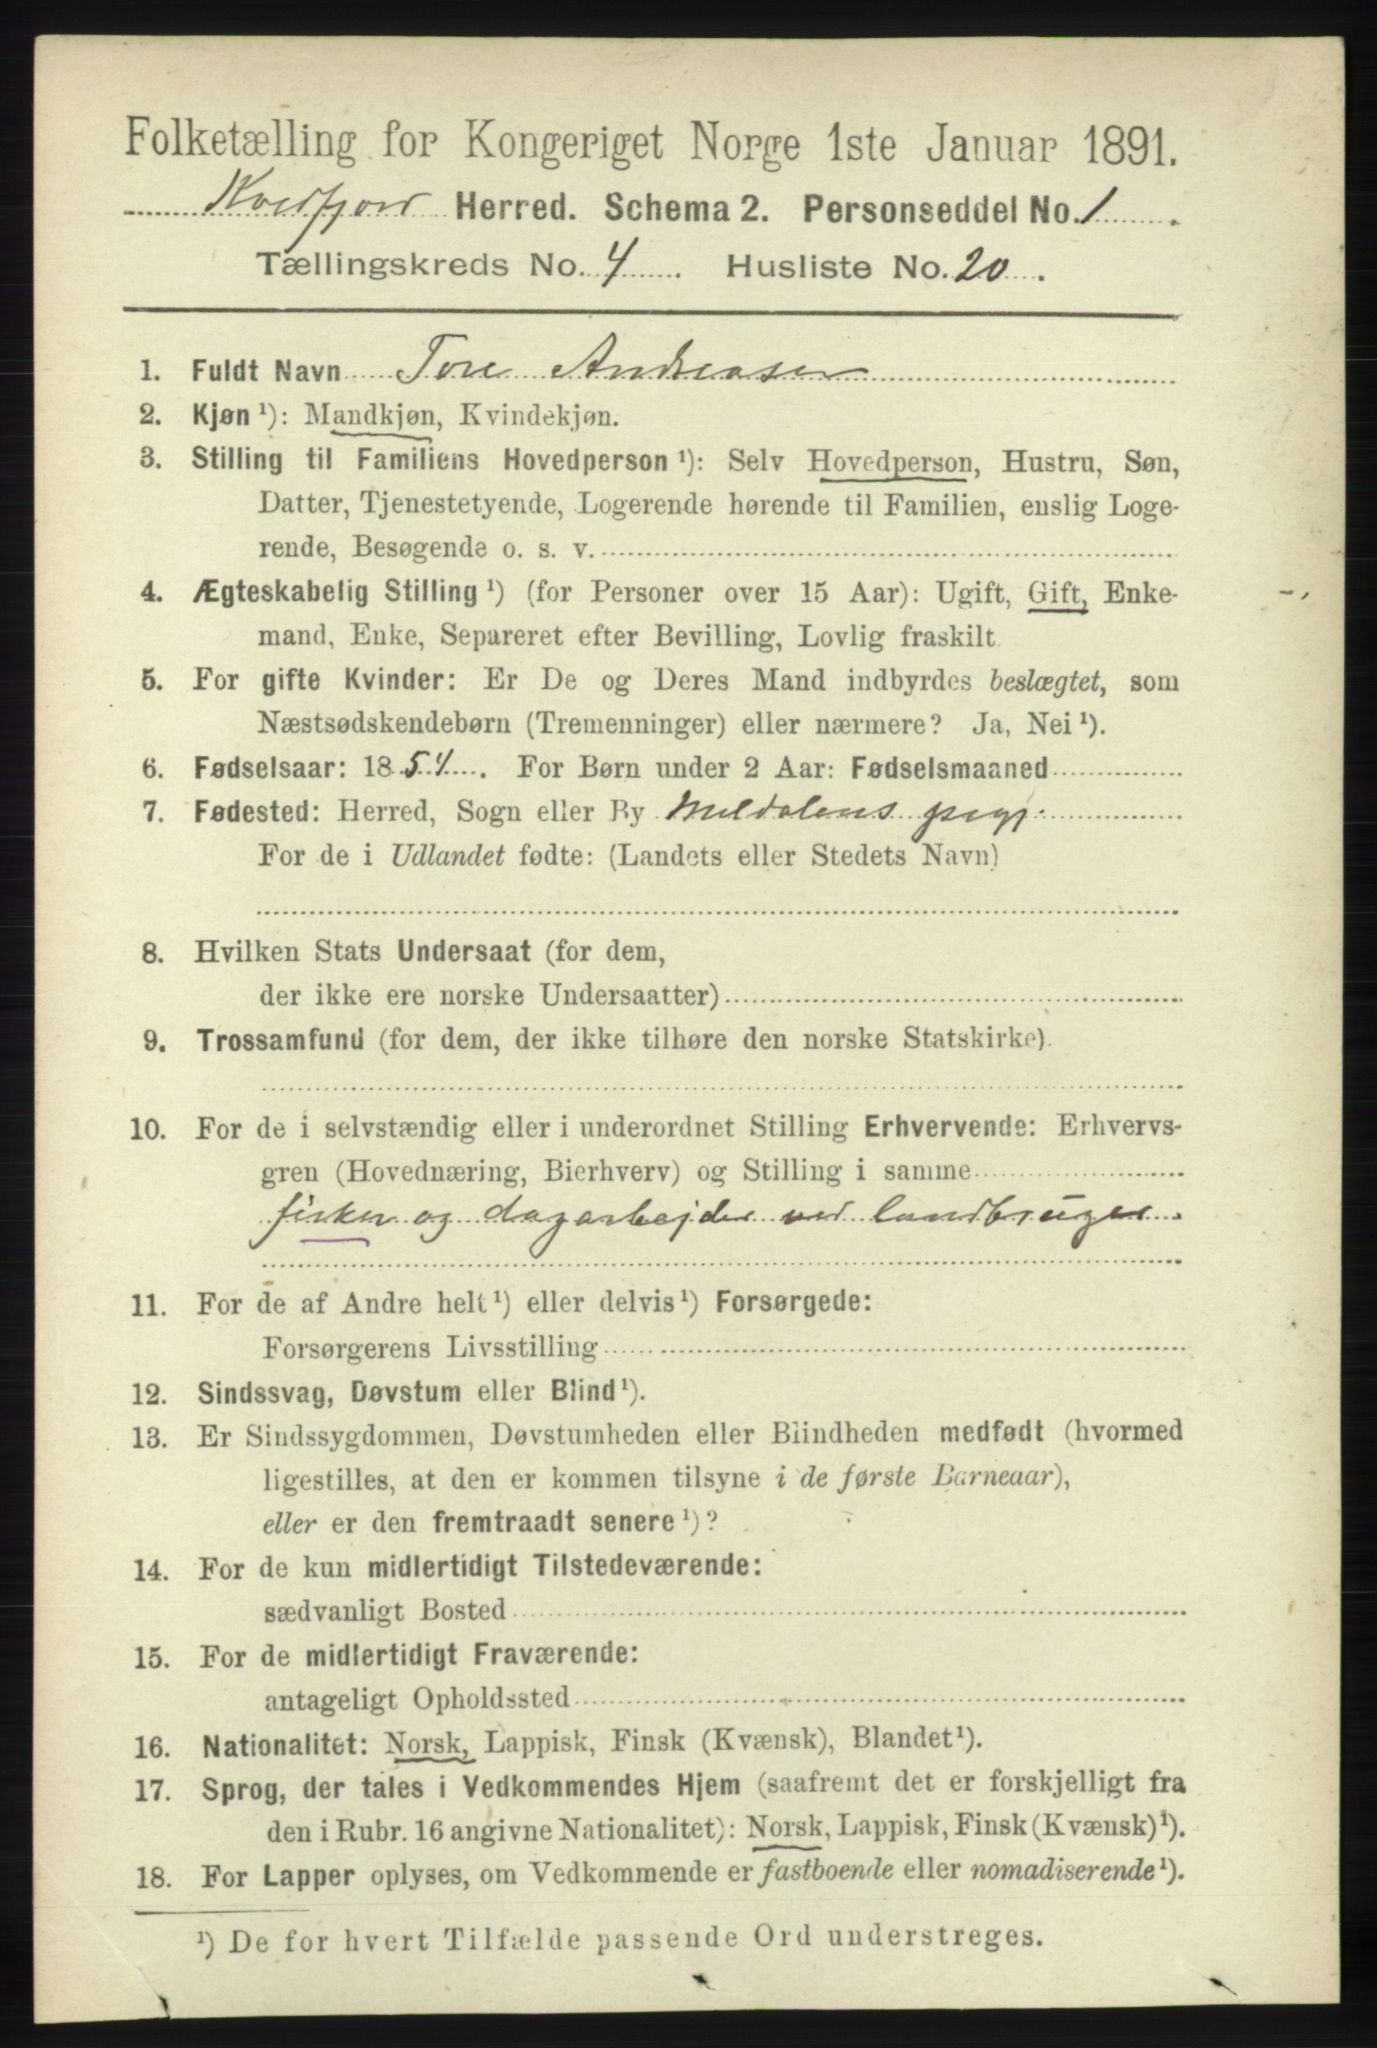 Folketælling for Kongeriget Norge 1ste Januar 1891.
Kvedfjord Herred. Schema 2. Personseddel No. 1
Tællingskreds No. 4. Husliste No. 20.
1. Fuldt Navn Tore Andreasen
2. Kjøn ¹): Mandkjøn, Kvindekjøn.
3. Stilling til Familiens Hovedperson ¹): Selv Hovedperson, Hustru, Søn,
Datter, Tjenestetyende, Logerende hørende til Familien, enslig Loge-
rende, Besøgende o. s. v.
4. Ægteskabelig Stilling ¹) (for Personer over 15 Aar): Ugift, Gift, Enke-
mand, Enke, Separeret efter Bevilling, Lovlig fraskilt
5. For gifte Kvinder: Er De og Deres Mand indbyrdes beslægtet, som
Næstsødskendebørn (Tremenninger) eller nærmere? Ja, Nei ¹).
6. Fødselsaar: 1854. For Børn under 2 Aar: Fødselsmaaned
7. Fødested: Herred, Sogn eller By Meldalens
For de i Udlandet fødte: (Landets eller Stedets Navn)
8. Hvilken Stats Undersaat (for dem,
der ikke ere norske Undersaatter)
9. Trossamfund (for dem, der ikke tilhøre den norske Statskirke)
10. For de i selvstændig eller i underordnet Stilling Erhvervende: Erhvervs-
gren (Hovednæring, Bierhverv) og Stilling i samme
fisker og dagarbejder ved landbruget
11. For de af Andre helt ¹) eller delvis ¹) Forsørgede:
Forsørgerens Livsstilling
12. Sindssvag, Døvstum eller Blind ¹).
13. Er Sindssygdommen, Døvstumheden eller Blindheden medfødt (hvormed
ligestilles, at den er kommen tilsyne i de første Barneaar),
eller er den fremtraadt senere ¹)?
14. For de kun midlertidigt Tilstedeværende:
sædvanligt Bosted
15. For de midlertidigt Fraværende:
antageligt Opholdssted
16. Nationalitet: Norsk, Lappisk, Finsk (Kvænsk), Blandet ¹).
17. Sprog, der tales i Vedkommendes Hjem (saafremt det er forskjelligt fra
den i Rubr. 16 angivne Nationalitet): Norsk, Lappisk, Finsk (Kvænsk) ¹).
18. For Lapper oplyses, om Vedkommende er fastboende eller nomadiserende ¹).
¹) De for hvert Tilfælde passende Ord understreges.